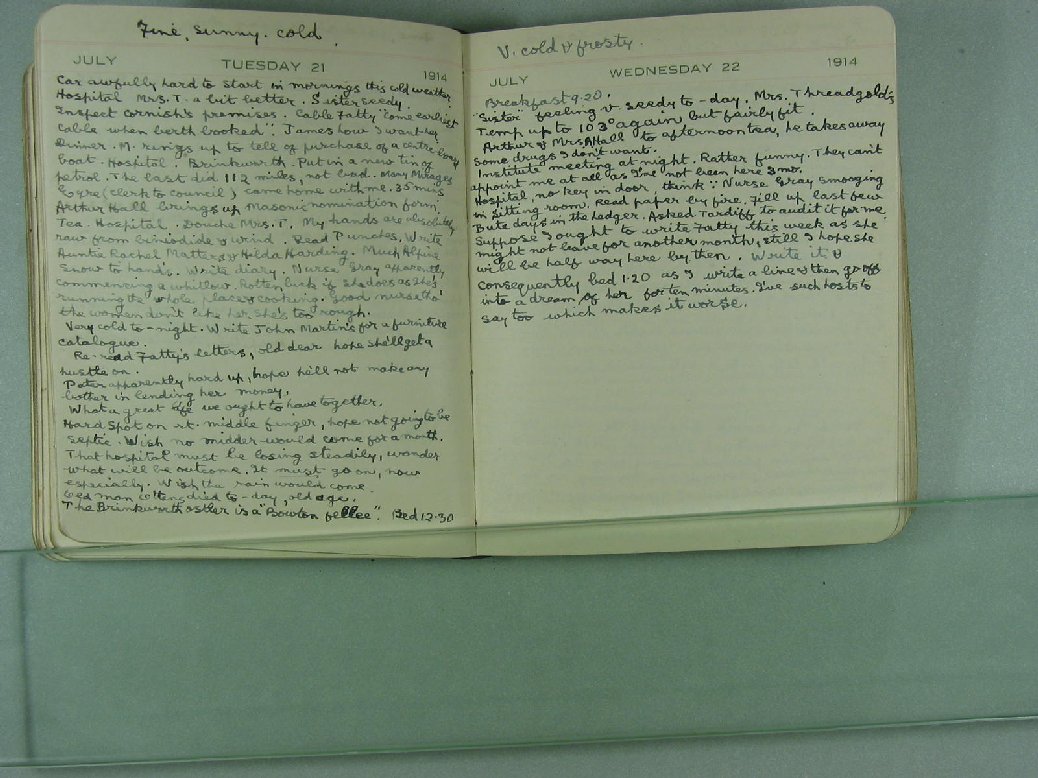 Fine, Sunny. cold.
JULY TUESDAY 21 1914
Car awfully hard to start in mornings this cold weather.
Hospital Mrs. T. a bit better. Sister seedy.
Inspect Cornish's premises. Cable Fatty "Come earliest
cable when berth booked". James how I want her.
Dinner. M. rings up to tell of purchase of a centre board
boat. Hospital. Brinkworth. Put in a new tin of
petrol. The last did 112 miles, not bad. Mary Mirages
(clerk to council) came home with me. 35 mins
Arthur Hall brings up Masonic nomination form.
Tea. Hospital. Douche Mrs. T. My hands are absolutely
raw from biniodide & wind. Read Punches. Write
Auntie Rachel Matters & Hilda Harding. Much Alpine
Snow to hands. Write diary. Nurse Gray apparently
commencing a whitlow. Rotten luck if she does as She's
running the whole place & cooking. Good nurse tho'
the women don't like her she's too rough.
Very cold to-night. Write John Martin's for a furniture
catalogue.
Re-read Fatty's letters, old dear hope she'll get a
hustle on.
Pater apparently hard up, hope he'll not make any
bother in lending her money.
What a great life we ought to have together.
Hard Spot on rt. middle finger, hope not going to be
septic. Wish no midder would come for a month.
That hospital must be losing steadily, wonder
what will be outcome. It must go on, now
especially. Wish the rain would come.
Old man died to-day, old age.
The Brinkworth ostler is a "Bowton fellee". Bed 12.30
V. cold & frosty.
JULY WEDNESDAY 22 1914
Breakfast 9.20.
"Sister" feeling v seedy to-day. Mrs. Threadgold's
Temp up to 103° again but fairly fit.
Arthur & Mrs. A Hall to afternoon tea, he takes away
some drugs I don't want.
Institute meeting at night. Ratter funny. They can't
appoint me at all as I've not been here 3 mo.
Hospital, no key in door, think : Nurse Gray smooging
in sitting room. Read paper by fire. Fill up last few
Bute days in the ledger. Asked Tardiff to audit it for me.
Suppose I ought to write Fatty this week as she
might not leave for another month, still I hope she
will be half way here by then. Write it &
consequently bed 1.20 as I write a line & then go off
into a dream of her for ten minutes. I've such hosts to
say too which makes it worse.